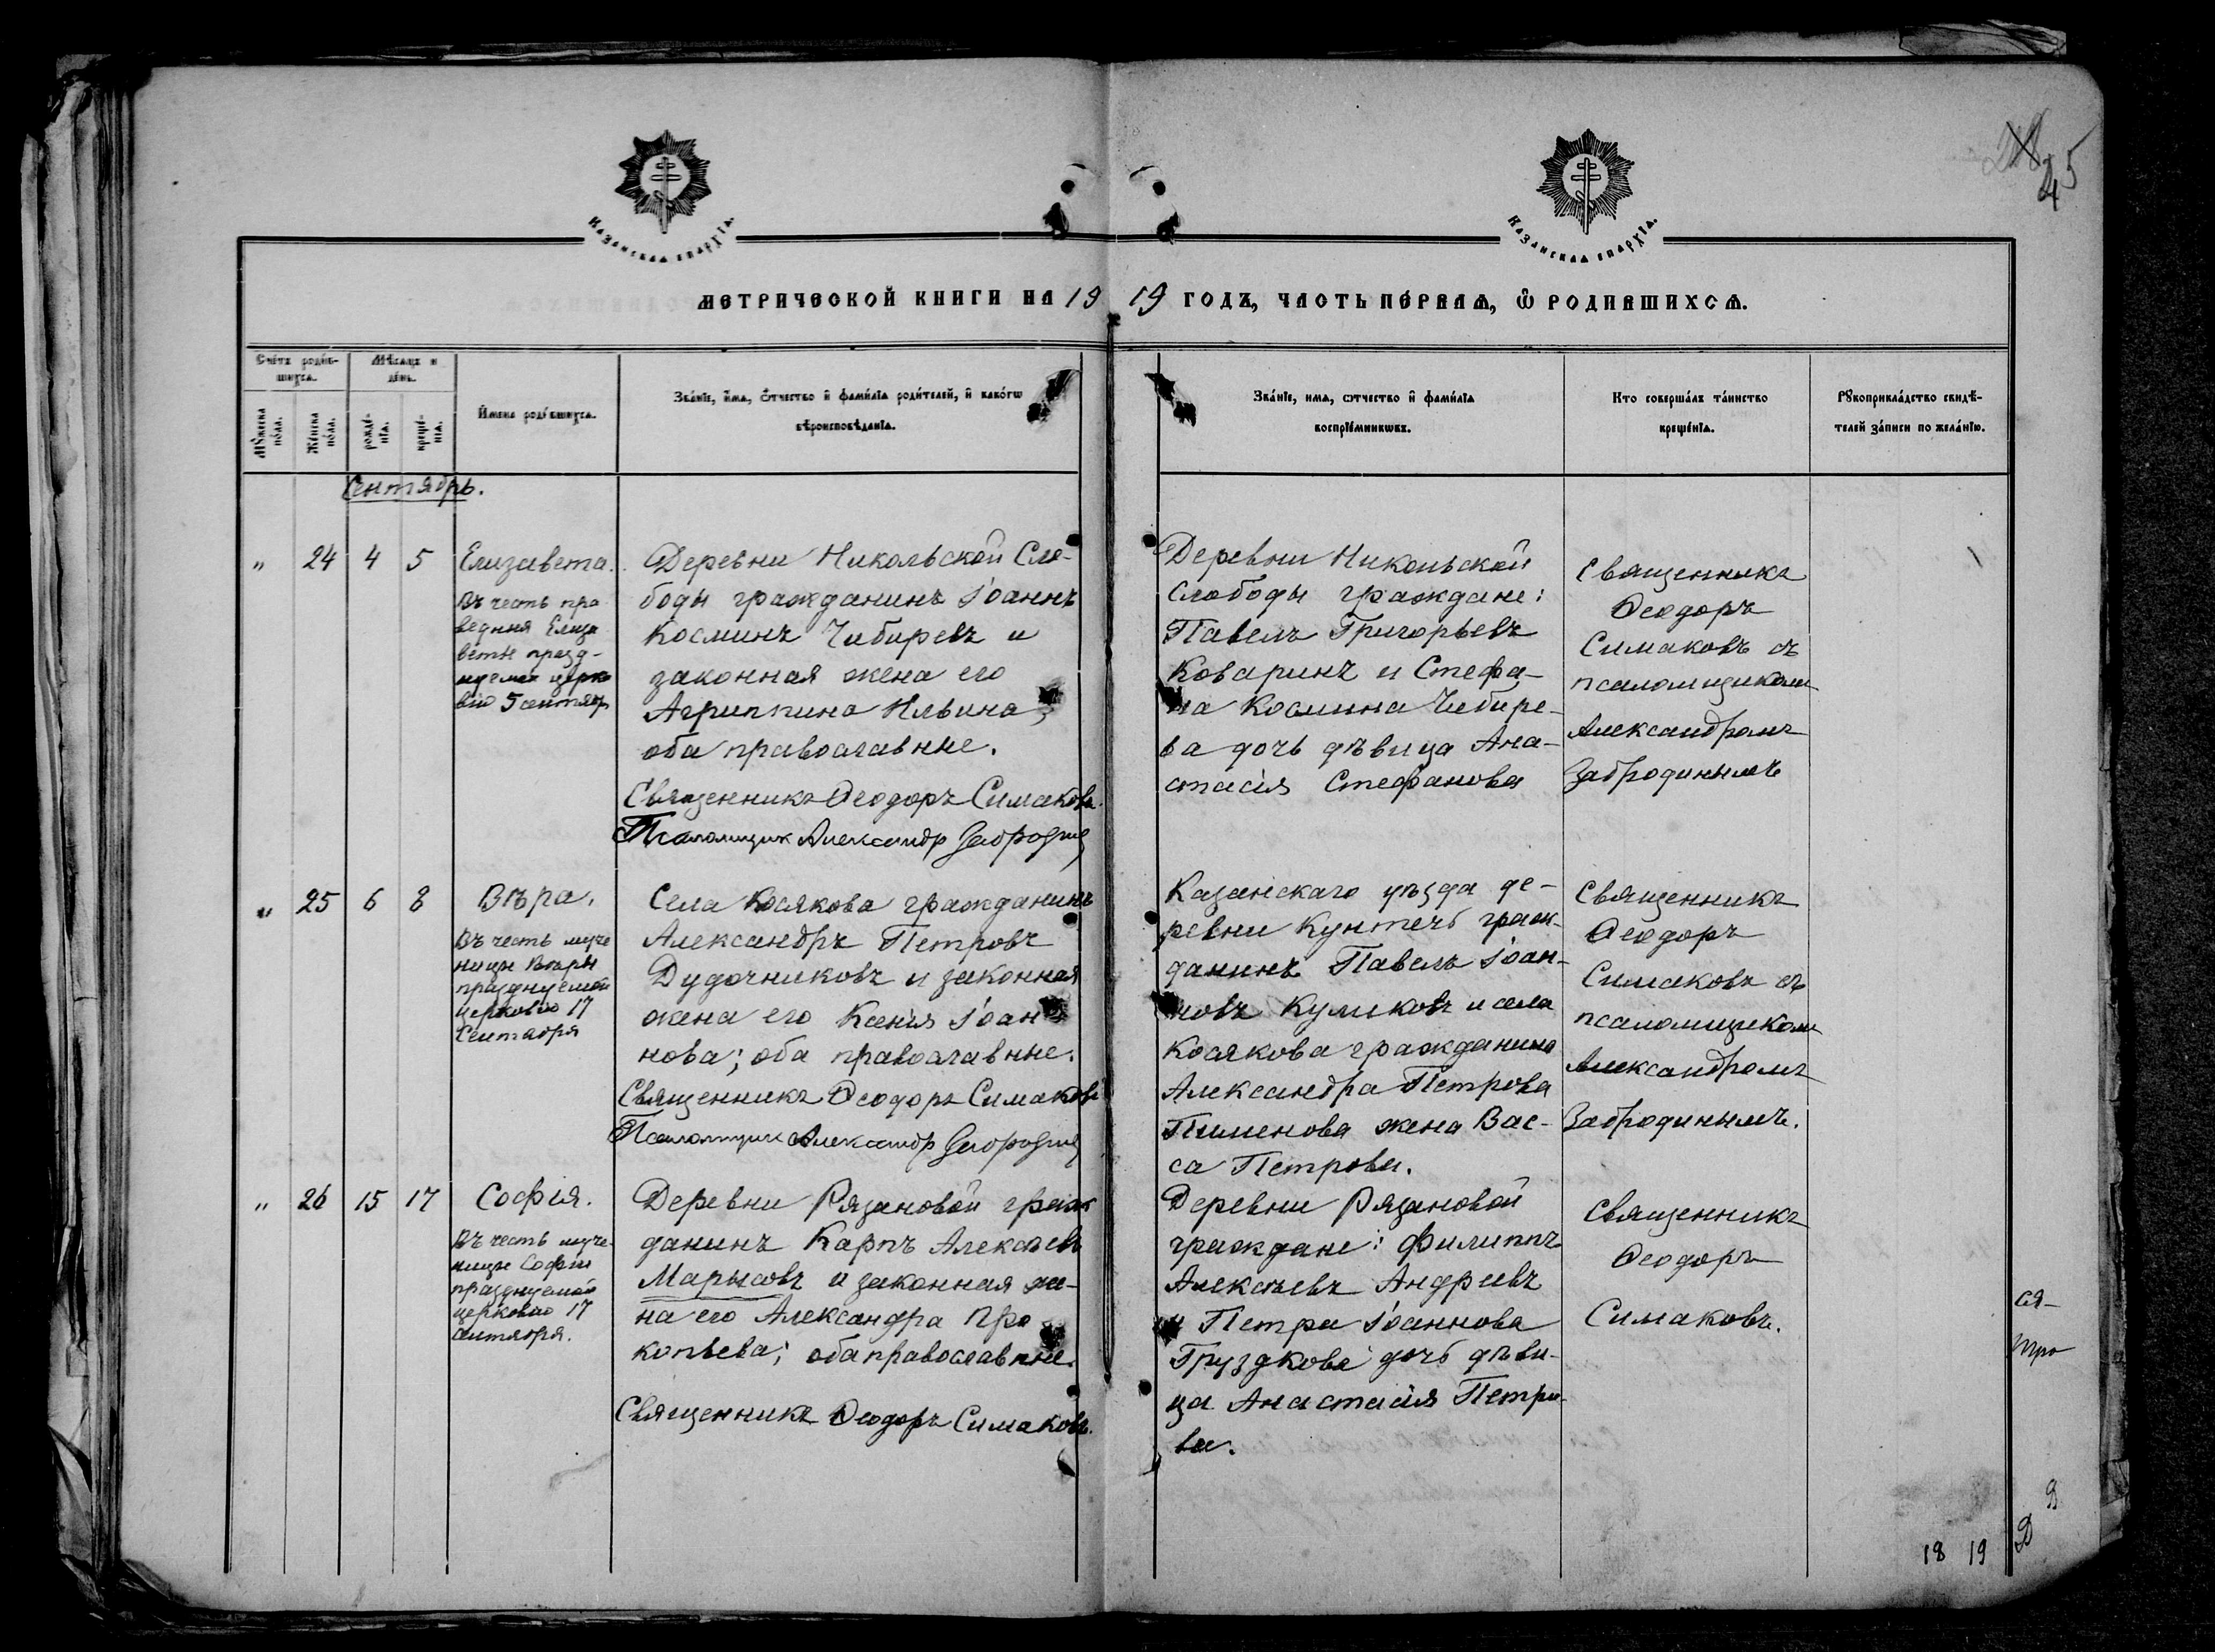 45
КАЗАНСКАѦ ЕПАРХІѦ.
КАЗАНСКАѦ ЕПАРХІѦ.
МЕТРИЧЕСКОЙ КНИГИ НА 19 19 ГОДЪ, ЧАСТЬ ПЕРВАѦ, Ѿ РОДИВШИХСѦ.
Сче́тъ роди́вшихсѧ.
Мѣ́сѧцъ и де́нь.
Мꙋ́жеска по́ла.
Же́нска по́ла.
рожде́нїѧ.
креще́нїѧ.
И́мена роди́вшихсѧ.
Зва́нїе, и́мѧ, ѻ҆́тчество и҆ фами́лїѧ роди́телей, и҆ како́гѡ
вѣроисповѣ́данїѧ.
Зва́нїе, имѧ, ѻтчество и҆ фами́лїѧ
воспрїе́мникѡвъ.
Кто соверша́лъ та́инство
креще́нїѧ.
Рꙋкоприкла́дство свидѣ́-
телей за́писи по жела́нїю.
Сентябрь.
" 24 4 5 Елизавета.
Въ честь пра
ведныя Елиза
веты празд-
нуемая церко
вію 5 сентяб
Деревни Никольской Сло-
боды гражданинъ Іоаннъ
Косминъ Чибиревъ и
законная жена его
Агриппина Ильина;
оба православные.
Священникъ Ѳеодоръ Симаковъ.
Псаломщик Александр Забродин
Деревни Никольской
Слободы граждане:
Павелъ Григорьевъ
Коваринъ и Стефа-
на Космина Чибире-
ва дочь дѣвица Ана-
стасія Стефанова
Священникъ
Ѳеодоръ
Симаковъ съ
псаломщикомъ
Александромъ
Забродинымъ
" 25 6 8 Вѣра.
Въ честь муче
ницы Вѣры
празднуемой
церковію 17
Сентября
Села Косякова гражданинъ
Александръ Петровъ
Дудочниковъ и законная
жена его Ксенія Іоан
нова; оба православные.
Священникъ Ѳеодоръ Симаковъ
Псаломщик Александр Забродин
Казанскаго уѣзда де-
ревни Кунтечь граж-
данинъ Павелъ Іоан-
новъ Куликовъ и села
Косякова гражданина
Александра Петрова
Пименова жена Вас-
са Петрова.
Священникъ
Ѳеодоръ
Симаковъ съ
псаломщикомъ
Александромъ
Забродинымъ.
" 26 15 17 Софія.
Въ честь муче-
ницы Софіи
празднуемой
церковію 17
сентября.
Деревни Рязановой граж
данинъ Карпъ Алексѣевъ
Марысовъ и законная же-
на его Александра Про
копьева; оба православные.
Священникъ Ѳеодоръ Симаковъ.
Деревни Рязановой
граждане: Филиппъ
Алексѣевъ Андреевъ
и Петра Іоаннова
Груздкова дочь дѣви-
ца Анастасія Петро-
ва.
Священникъ
Ѳеодоръ
Симаковъ.
ся-
тро
18 19